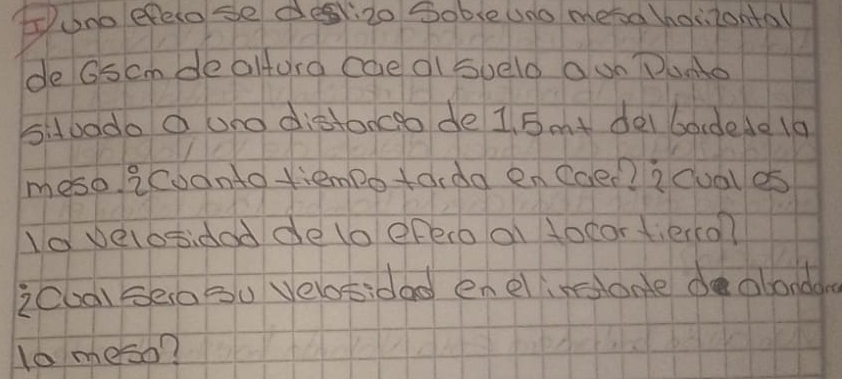 I) una efera se desliza sobre una mesa horizontal
de 65cm de altura cae al suelo a un Punto
situado a una distancia de 1.5mt del borde de la
mesa. ¿Cuanto tiempo tarda en caer? ¿Cual es
la velosidad de la efera al tocar tierra?
¿Cual sera su velosidad en el instante de abandonar
la mesa?